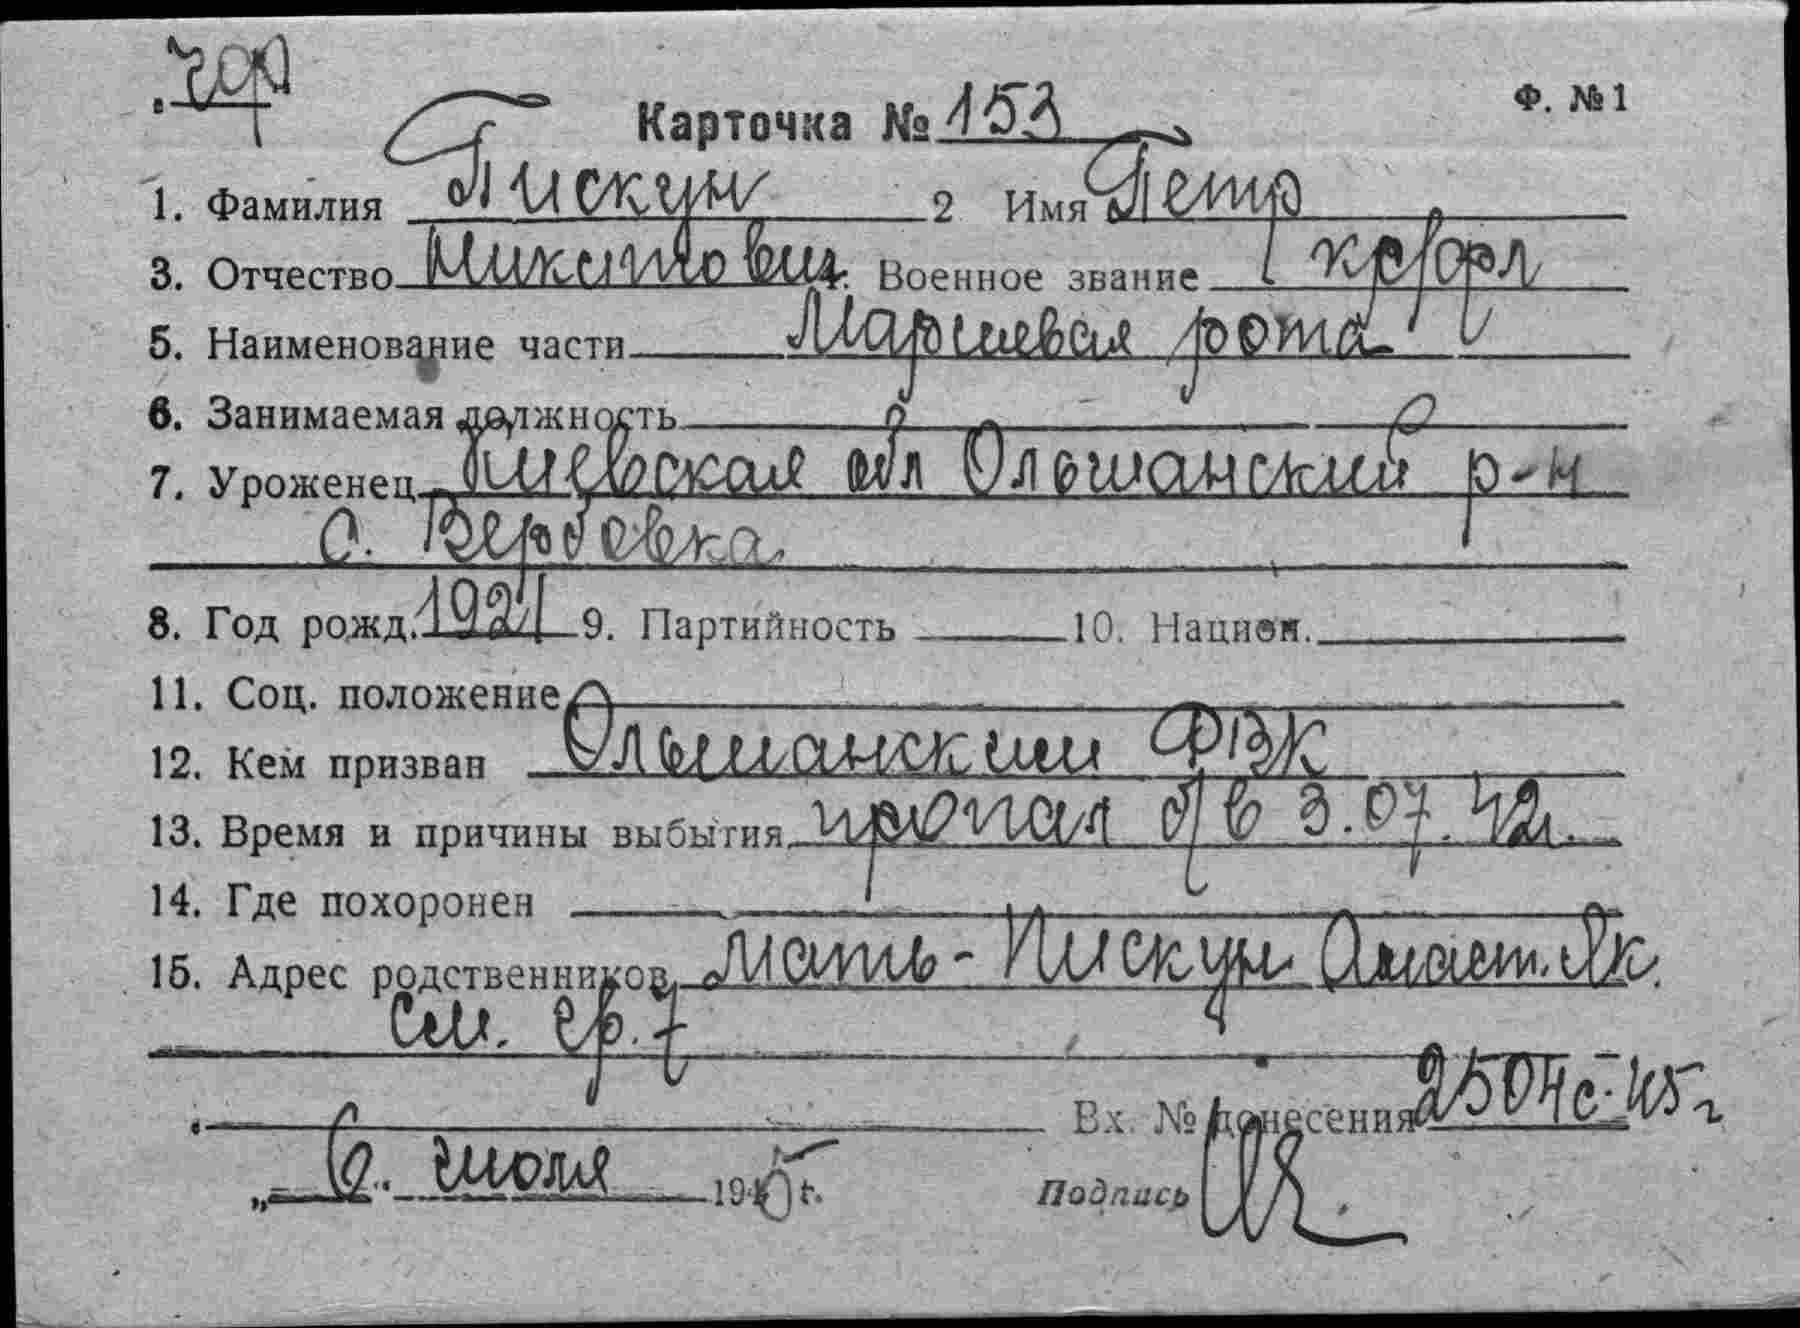 чф
Карточка № 153
Ф. № 1
1. Фамилия Пискун 2 Имя Петр
3. Отчество Микитович 4. Военное звание кр/фл
5. Наименование части Маршевая рота
6. Занимаемая должность
7. Уроженец Киевская обл Ольшанский р-н
с. Вербовка
8. Год рожд. 1921 9. Партийность 10. Национ.
11. Соц. положение
12. Кем призван Ольшанским ФВК
13. Время и причины выбытия пропал б/в 3.07.42г.
14. Где похоронен
15. Адрес родственников Мать - Пискун Анаст. Як.
см. гр. 7
Вх. № донесения 2504с-45г
„ 6 „ июля 1945 г. Подпись